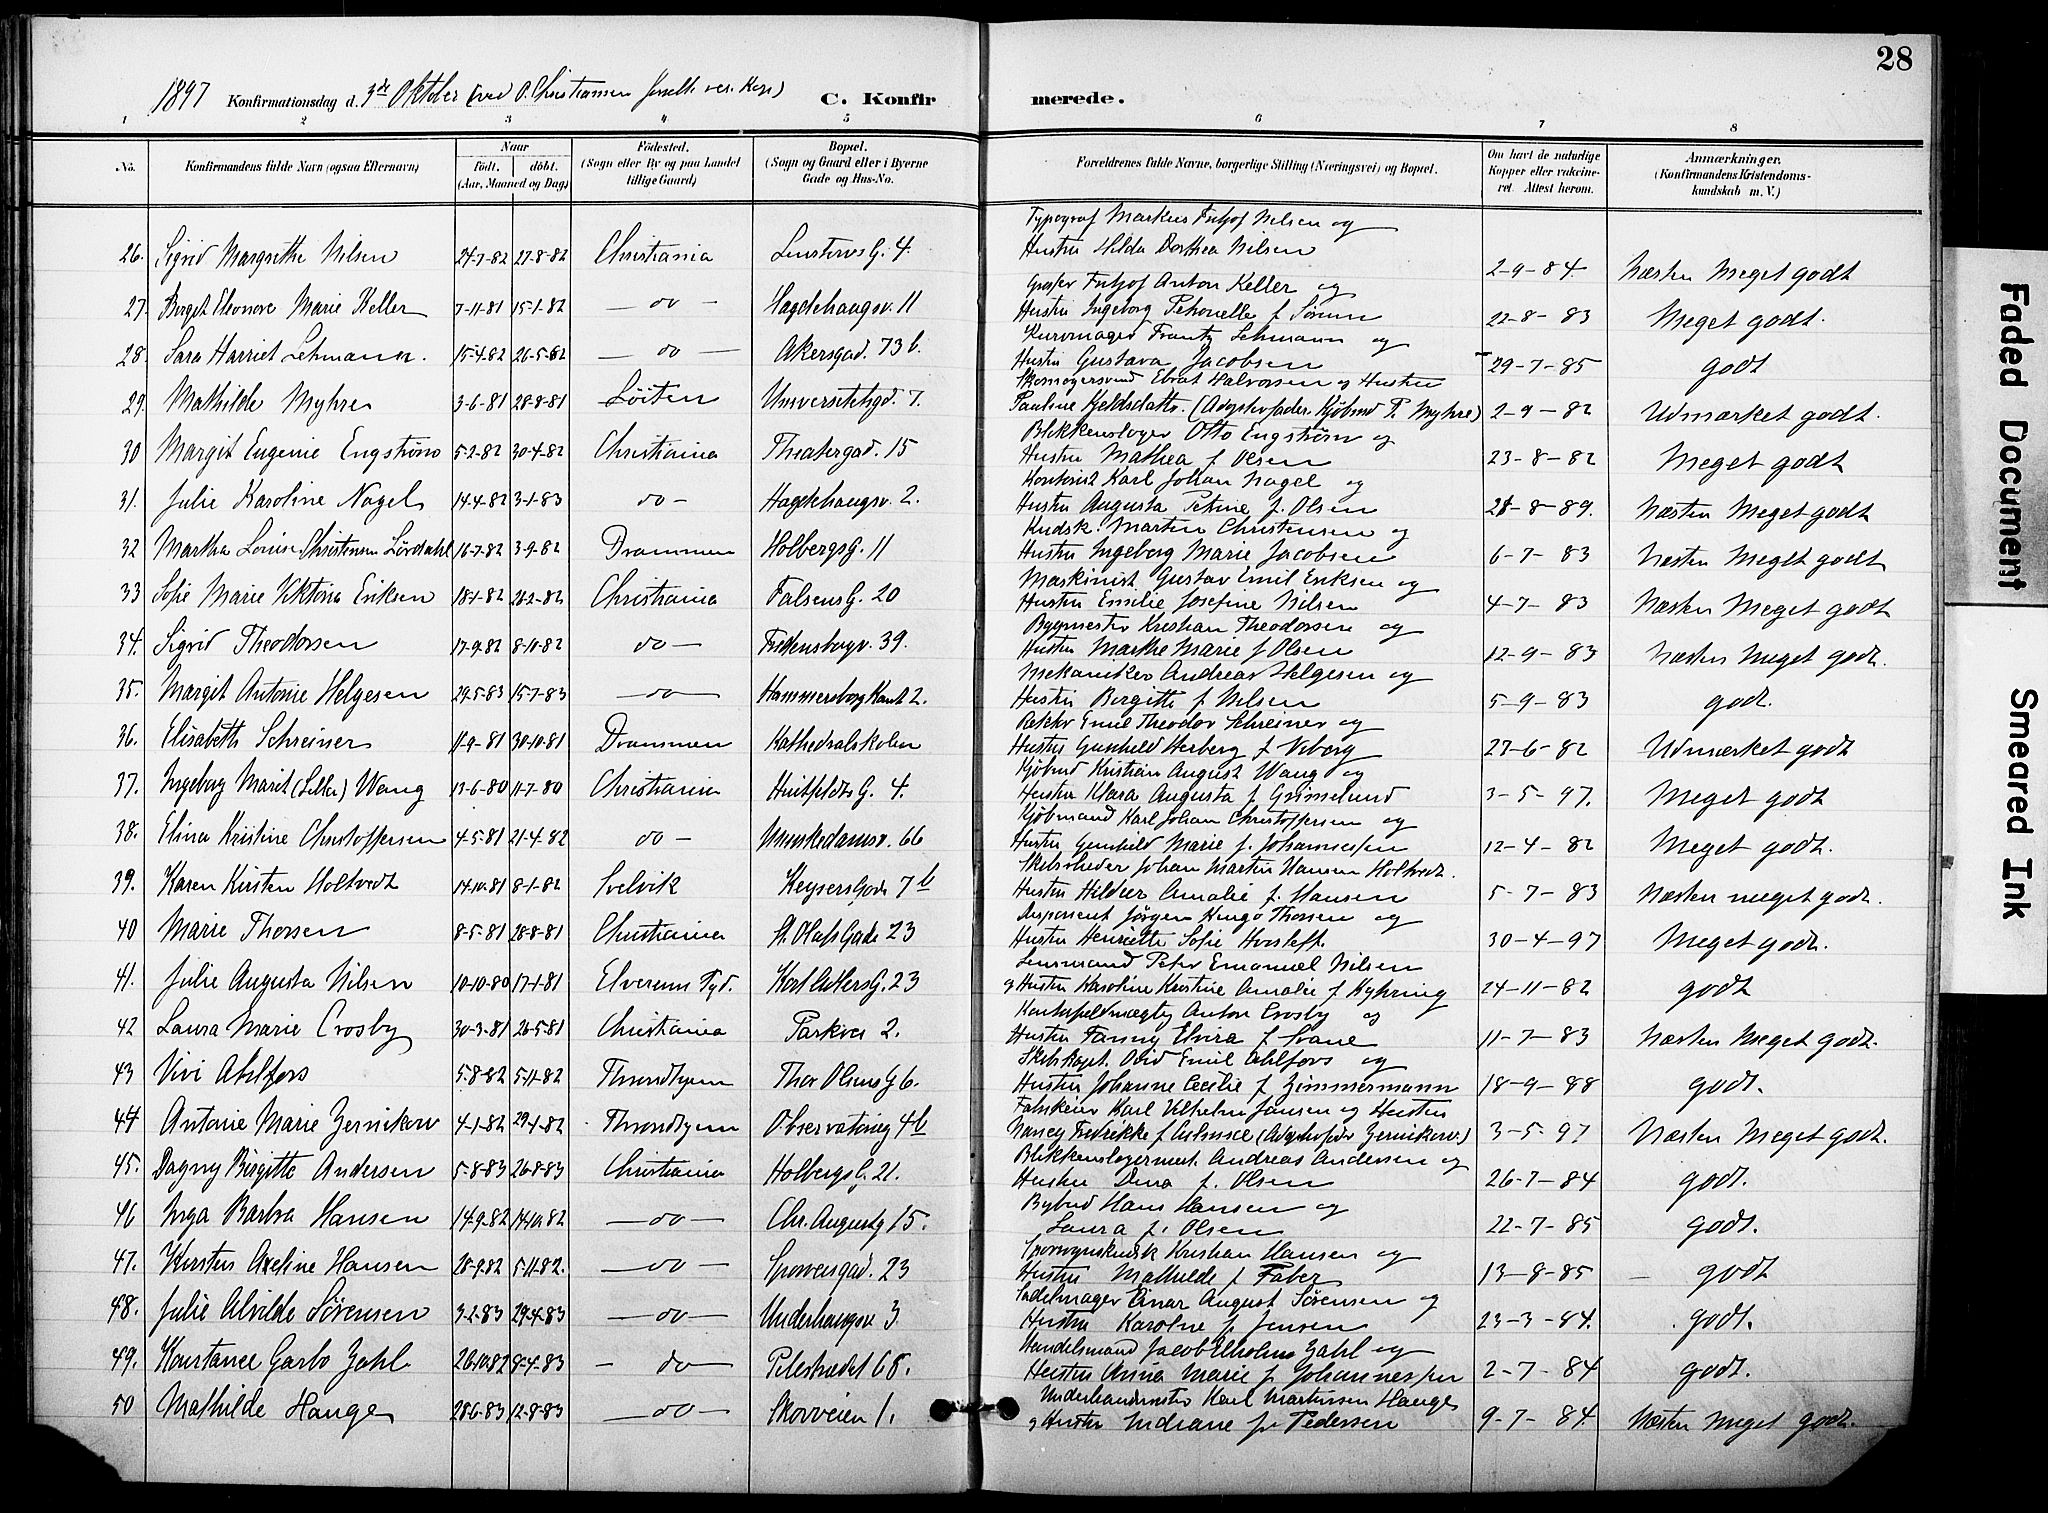 28
1897 Konfirmationsdag d. 3de Oktober (ved O. Christiansen
C. Konfir merede.
1 2 3 4 5 6 7 8
No. Konfirmandens fulde Navn (ogsaa Efternavn) Naar født. døbt. (Aar, Maaned og Dag) Fødested. (Sogn eller By og paa Landet tillige Gaard) Bopæl. (Sogn og Gaard eller i Byerne Gade og Hus-No. Forældrenes fulde Navne, borgerlige Stilling (Næringsvei) og Bopæl. Om havt de naturlige Kopper eller vakcineret. Attest herom. Anmærkninger. (Konfirmandens Kristendomskundskab m. V.)
Typograf Markus Fritjof Nilsen og
26. Sigrid Margrethe Nilsen 24-7-82 27-8-82 Christiania G. 4. Hustru Hilda Dorthea Nilsen 2-9-84. Næsten Meget godt
Fritjof Anton Keller og
27. Borget Eleonore Marie Keller 7-11-81 15-1-82 — do — Hægdehaugsv. 11 Hustru Ingeborg Petronelle f. Sørum 22-8-83 Meget godt.
Kurvmager Frantz Lehmann og
28. Sara Harriet Lehmann. 15-4-82 26-5-82 — do — Akersgad. 73 b. Hustru Gustava Jacobsen 29-7-85 godt
Skomagersvend Halvorsen og Hustru
29. Mathilde Myhre 3-6-81 28-8-81 Løiten Universitetsgd. 7. Pauline Kjeldsdattr. (Adoptivfader Kjøbmd P. Myhre) 2-9-82 Udmærket godt.
Blikkenslager Otto Engstrøm og
30 Margit Eugenie Engstrøm 5-2-82 30-4-82 Christiania Theatergad. 15 Hustru Mathea f. Olsen 23-8-82 Meget godt
Kontorist Karl Johan Nagel og
31. Julie Karoline Nagel 14-4-82 3-1-83 do — Hægdehaugsv. 2. Hustru Augusta Petrine f. Olsen 28-8-89. Næsten Meget godt
Kudsk Marten Christensen og
32 Martha Louise Christensen Lørdahl 16-7-82 3-9-82 Drammen Holbergs G. 11 Hustru Ingeborg Marie Jacobsen 6-7-83 Næsten Meget godt
Maskinist Gustav Emil Eriksen og
33 Sofie Marie Viktoria Eriksen 18-1-82 26-2-82 Christiania Falsens G. 20 Hustru Emilie Josefine Nilsen 4-7-83 Næsten Meget godt
Bygmester Kristian Theodorsen og
34. Sigrid Theodorsen 17-9-82 8-10-82 do — Fredensborgv. 39. Hustru Marthe Marie f Olsen 12-9-83 Næsten Meget godt.
Mekaniker Andreas Helgesen og
35. Margit Antonie Helgesen 29-5-83 15-7-83 — do — Hammersborg Kant 2. Hustru Bergitte f. Nilsen 5-9-83 godt.
Rektor Emil Theodor Schreiner og
36. Elisabeth Schreiner 11-9-81 30-10-81 Drammen Kathedralskolen Hustru Gunhild Herberg f. Viborg 27-6-82 Udmærket godt
Kjøbmd Kristian August Wang og
37. Ingeborg Marit (Lilla) Wang 13-6-80 11-7-80 Christiania Huitfeldts G. 4. Hustru Klara Augusta f. Grimelund 3-5-97. Meget godt
Kjøbmand Karl Johan Christoffersen og
38. Elina Kristine Christoffersen 4-5-81 21-4-82 do — Munkedamsv. 66 Hustru Gunhild Marie f. Johannessen 12-4-82 Meget godt.
Johan Martin Hansen Holtvedt.
39. Karen Kirsten Holtvedt 14-10-81 8-1-82 Svelvik Keysers Gade 7 b Hustru Hildur Amalie f. Hansen 5-7-83 Næsten meget godt.
Disponent Jørgen Kingo Thorsen og
40 Marie Thorsen 8-5-81 28-8-81 Christiania St. Olafs Gade 23 Hustru Henriette Sofie Horsleff. 30-4-97 Meget godt.
Lensmand Peter Emanuel Nilsen
41. Julie Augusta Nilsen 10-10-80 17-1-81 Elverum Karl Adlers G. 23 og Hustru Karoline Kristine Amalie f Kyhring 24-11-82 godt
Anton Crosby og
42 Laura Marie Crosby 30-3-81 26-5-81 Christiania Parkvei 2. Hustru Fanny Elvira f. Svane 11-7-83 Næsten Meget godt.
Skibskapt. Ovid Emil Ahlfors og
43 Vivi Ahlfors 5-8-82 5-11-82 Throndhjem Thor Olsens G 6. Hustru Johanne Cecilie f. Zimmermann 18-9-88 godt.
Karl Vilhelm Jansen og Hustru
44 Antonie Marie Zernikow 4-1-82 29-1-82 Throndhjem Observatorieg 4 b Nancy Fredrikke f. (Adoptivfader Zernikow.) 3-5-97 Næsten Meget godt.
Blikkenslagermest. Andreas Andersen og
45. Dagny Birgitte Andersen 5-8-83 26-8-83 Christiania Holbergs G. 21. Hustru Dina f. Olsen 26-7-84 godt.
Bybud Hans Hansen og
46 Inga Barbra Hansen 14-9-82 14-10-82 — do — Chr. Augustg 15. Laura f. Olsen 22-7-85 godt.
Sporvognskudsk Kristian Hansen og
47. Kirsten Axeline Hansen 28-9-82 5-11-82. — do — Sporveisgad. 23 Hustru Mathilde f Faber 13-8-85 — godt
Sadelmager Einar August Sørensen og
48. Julie Alvilde Sørensen 3-2-83 29-4-83 — do — Underhaugsv 3. Hustru Karoline f. Jensen 23-3-84. godt.
Handelsmand Jacob Zahl og
49. Konstance Garbo Zahl 26-10-82 8-4-83 — do — Pilestrædet 68. Hustru Anna Marie f. Johannessen 2-7-84 godt.
Karl Martinsen Hauge
50 Mathilde Hauge 28-6-83 12-8-83 — do — Skovveien 1. og Hustru Indiane f. Pedersen 9-7-84. Næsten Meget godt.
Faded Document
Smeared Ink